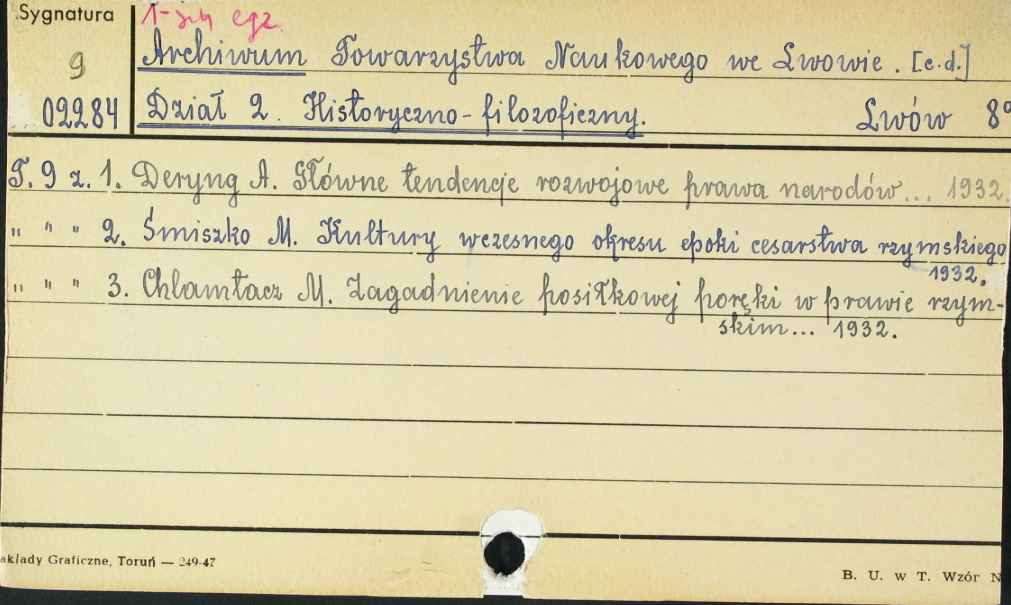 Sygnatura
1-szy egz.
9
Archiwum Towarzystwa Naukowego we Lwowie. [c.d.]
02284
Dział 2. Historyczno-filozoficzny. Lwów 8°
T. 9 z. 1. Deryng A. Główne tendencje rozwojowe prawa narodów... 1932.
" " " 2. Śmiszko M. Kultury wczesnego okresu epoki cesarstwa rzymskiego
1932.
" " " 3. Chlamtacz M. Zagadnienie posiłkowej poręki w prawie rzym-
skim... 1932.
akłady Graficzne, Toruń — 249-47
B. U. w T. Wzór N